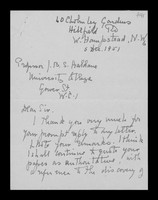 60 Cholmley Gardens
Hillfield Rd
W. Hampstead, N.W.6
Dec. 1951
Professor J. B. S. Haldane
University College
Gower St
W.C.1
Dear Sir,
I thank you very much for
your prompt reply to my letter.
I note your remarks. I think
I shall continue to quote your
papers as authoritative with
reference to the discovery of